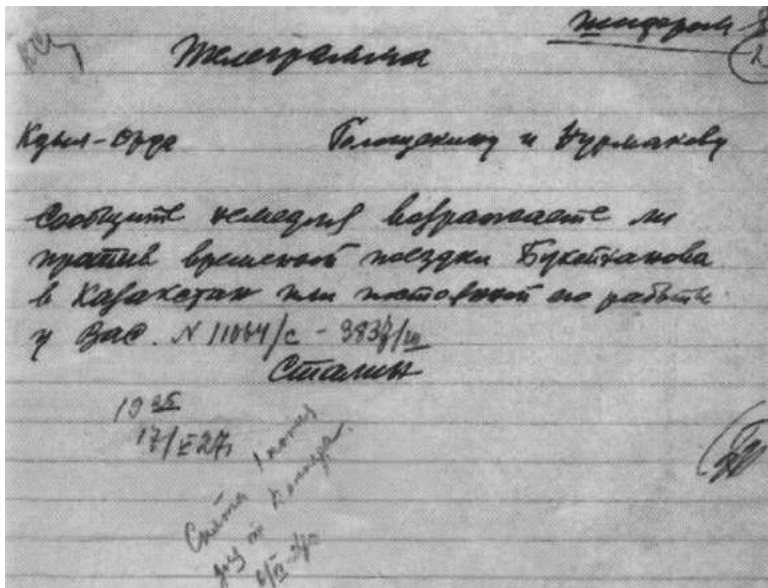 шифром
Телеграмма
Кзыл-Орда Голощекину и Нурмакову
Сообщите немедля возражаете ли
против временной поездки Букейханова
в Казакстан или постоянной его работы
у Вас. N 11064/с - 383
Сталин
19 25
17/ 27
Снята 1 копия
для т.